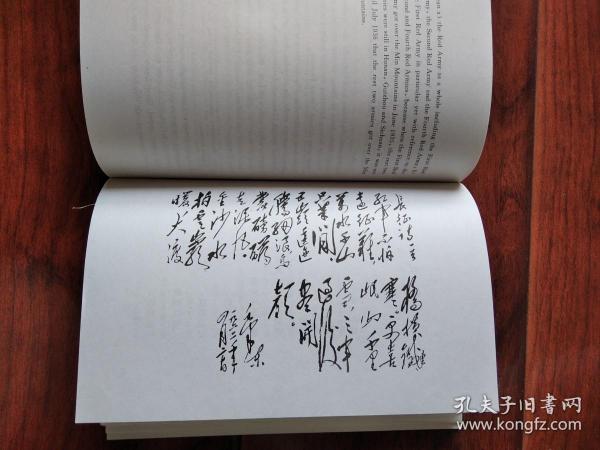 the Red Army as a whole including the First Red
the Second Red Army and the Fourth Red Army
First Red Army in particular yet with reference to
and Fourth Red Armies, because when the First Red
got over the Min Mountains in June 1935, the rest two
were still in Hunan, Guizhou and Sichuan; it was
July 1936 that the rest two armies got over the Min
長征詩一首
紅軍不怕
遠征難
萬水千山
只等閒
五嶺逶迤
騰細浪烏
蒙磅礴
走泥丸
金沙水
拍雲崖
暖大渡
橋横鐵索
寒更喜
岷山千里
雪三軍
過後
盡開
顏。
毛澤東
孔夫子旧书网
www.kongfz.com